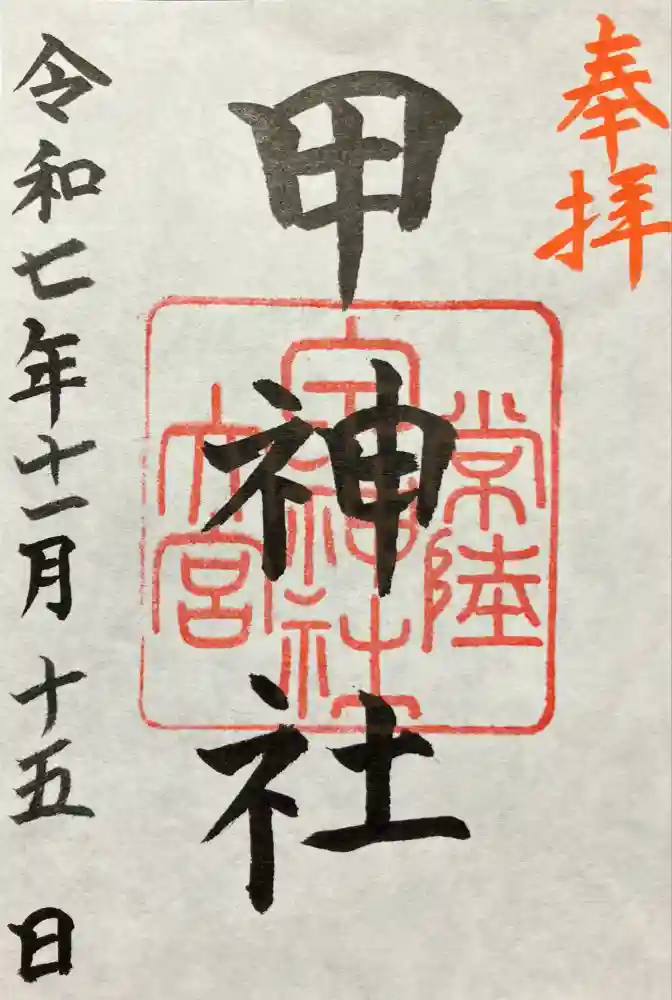 奉拝
甲神社
常陸
甲神社
大宮
令和七年十一月十五日